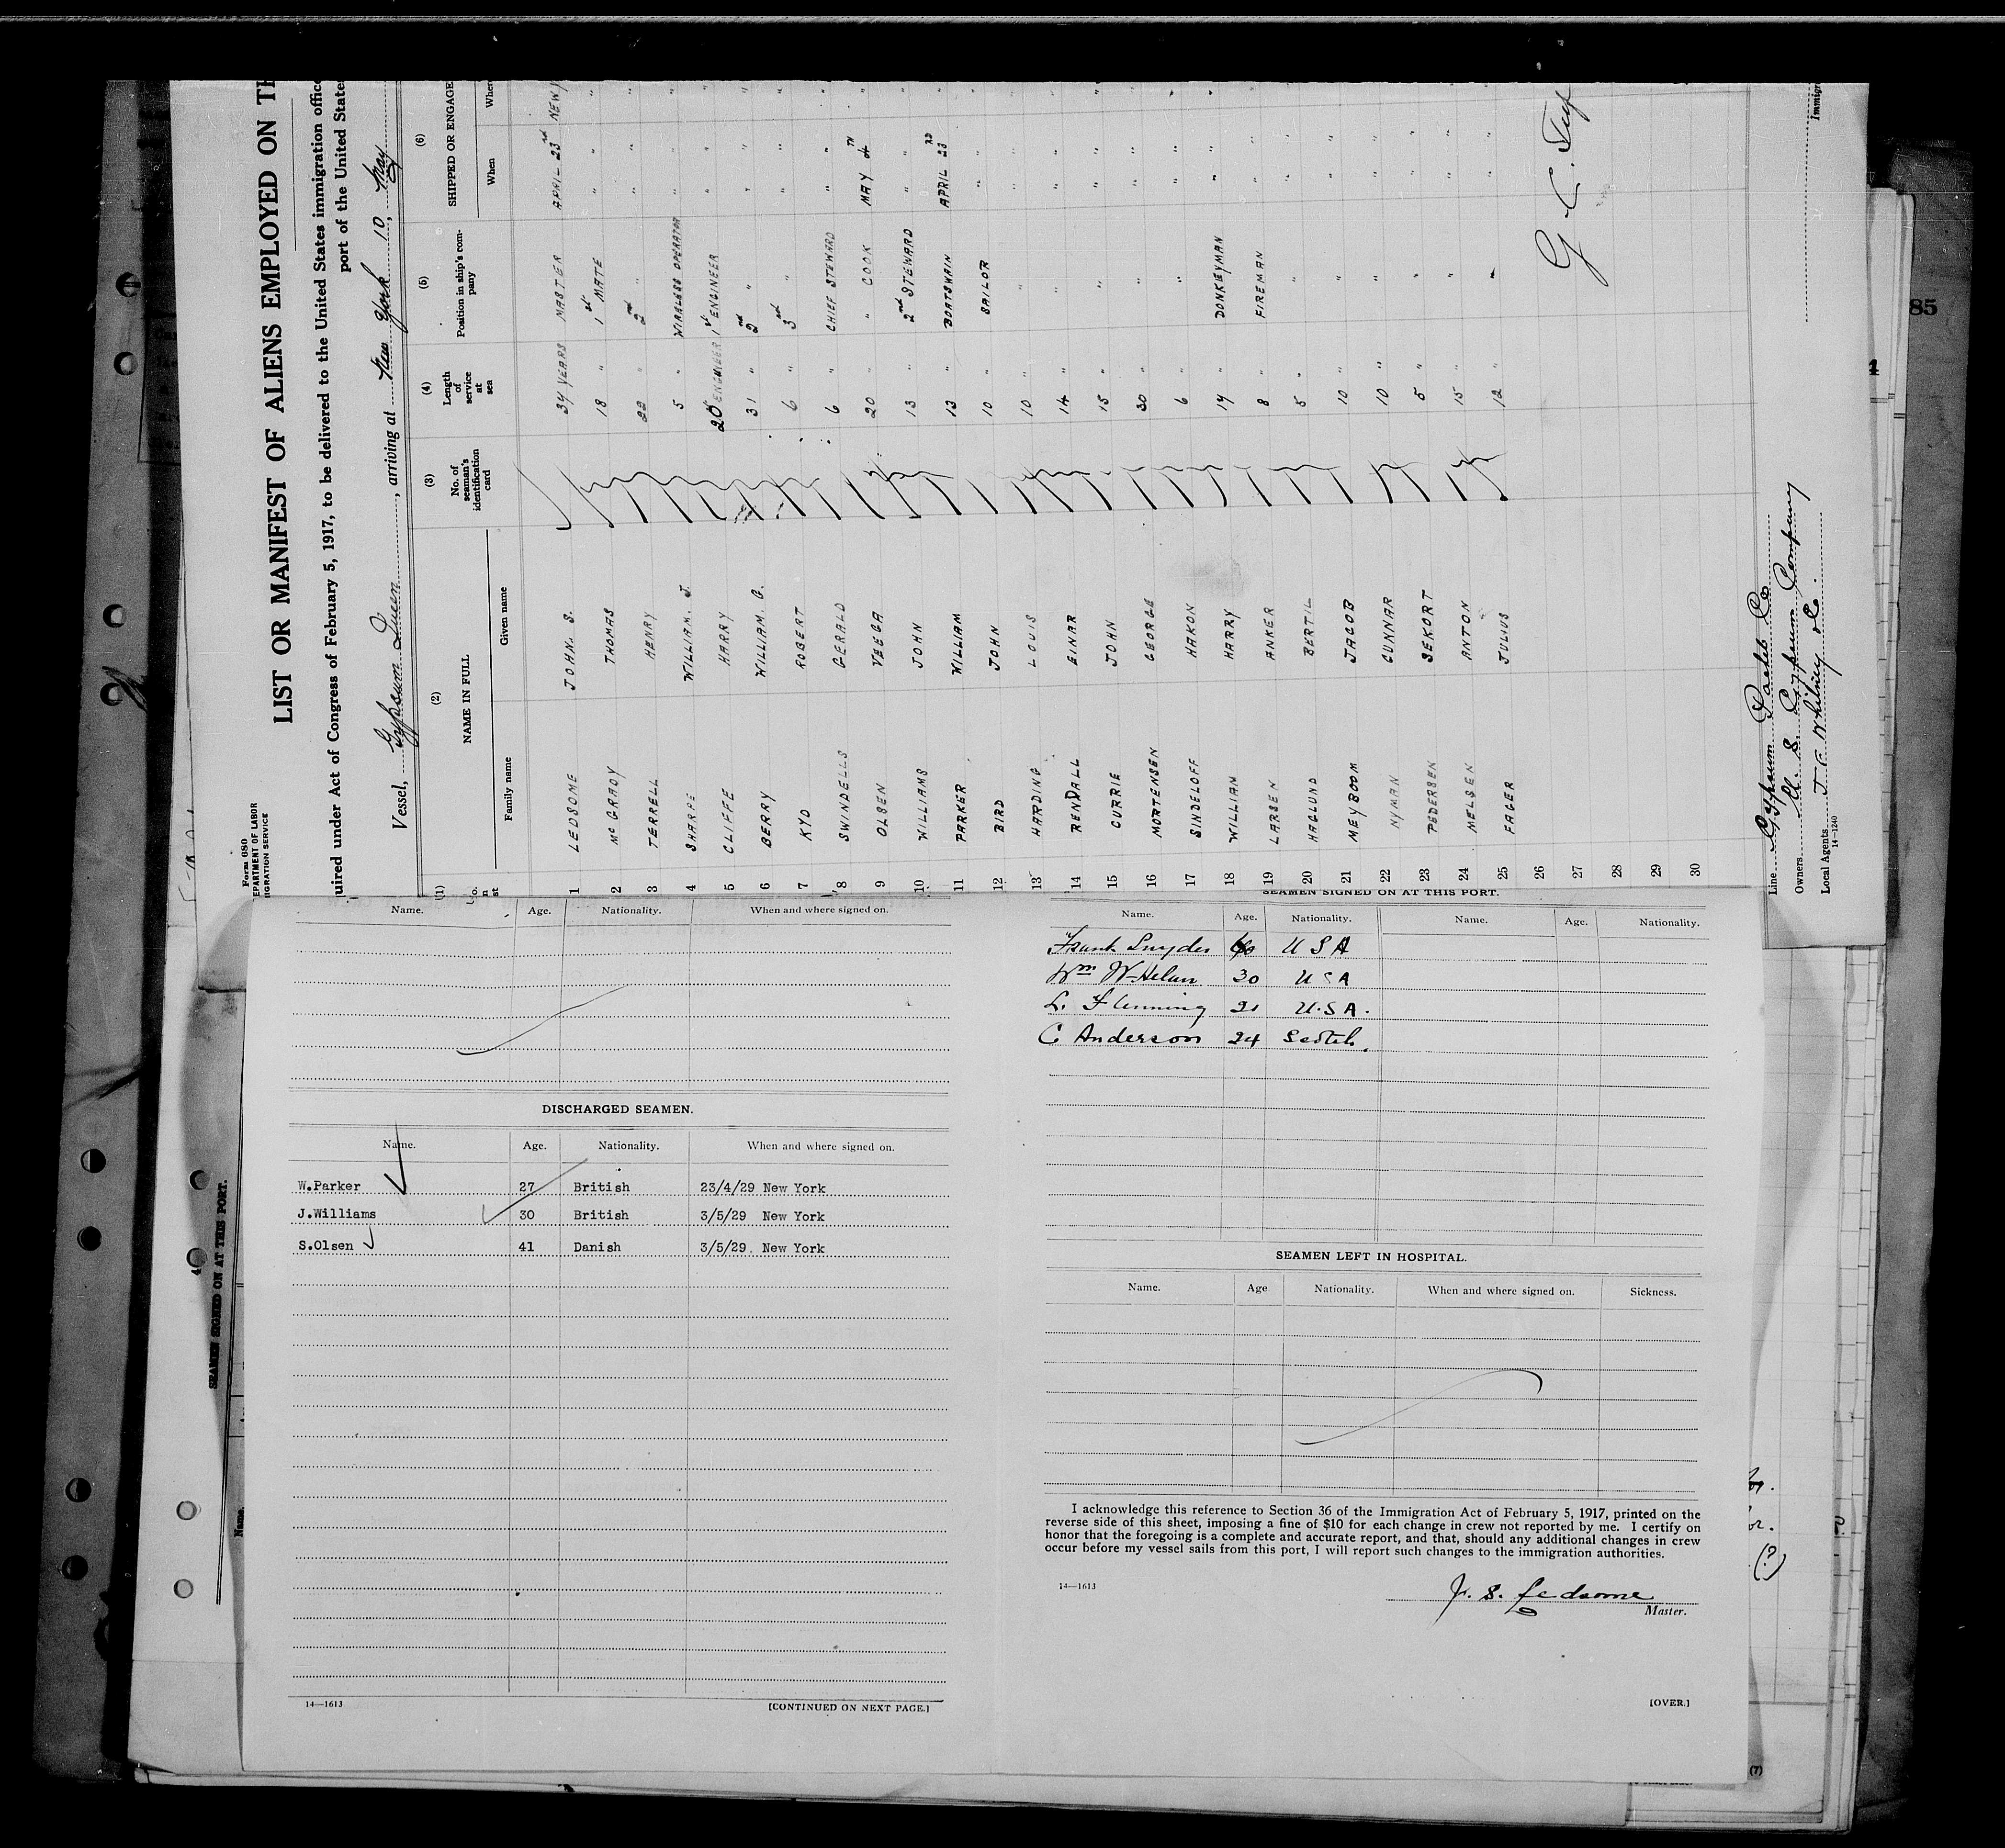 Form 680
LIST OR MANIFEST OF ALIENS EMPLOYED ON
uired under Act of Congress of February 5, 1917, to be delivered to the United States immigration offic
port of the United State
Vessel, Gypsum Queen, arriving at New York 10, May
(1) (2) (3) (4) (5) (6)
NAME IN FULL No. of seaman's identification card Length of service at sea Position in ship's company SHIPPED OR ENGAGE
Family name Given name When Wher
1 LEDSOME JOHN. S. 34 YEARS MASTER APRIL 23rd NEW Y
2 Mc GRADY THOMAS 18 " 1st MATE " " "
3 TERRELL HENRY 22 " 2nd " " " "
4 SHARPE WILLIAM. J. 5 " WIRELESS OPERATOR " " "
5 CLIFFE HARRY 20 ENGINEER 1st ENGINEER " " "
6 BERRY WILLIAM. G. 31 " 2nd " " " "
7 KYD ROBERT 6 " 3rd " " " "
8 SWINDELLS GERALD 6 " CHIEF STEWARD " " "
9 OLSEN VEEGA 20 " " COOK MAY TH "
10 WILLIAMS JOHN 13 " 2nd STEWARD " " "
11 PARKER WILLIAM 13 " BOATSWAIN APRIL 23 RD "
12 BIRD JOHN 10 " SAILOR " " "
13 HARDING LOUIS 10 " " " " "
14 RENDALL EINAR 14 " " " " "
15 CURRIE JOHN 15 " " " " "
16 MORTENSEN GEORGE 30 " " " " "
17 SINDELOFF HAKON 6 " " " " "
18 WILLIAN HARRY 14 " DONKEYMAN " " "
19 LARSEN ANKER 8 " FIREMAN " " "
20 HAGLUND BERTIL 5 " " " " "
21 MEYBOOM JACOB 10 " " " " "
22 NYMAN GUNNAR 10 " " " " "
23 PEDERSEN SEKORT 5 " " " " "
24 MELSEN ANTON 15 " " " " "
25 FAGER JULIUS 12 " " " " "
26
27
28
29
30
G. C.
Line Gypsum Packet Co
Owners U. S. Gypsum Company
Local Agents J. F. Whitney & Co.
14-1240
Immigr
85
Name. Age. Nationality. When and where signed on.
DISCHARGED SEAMEN.
Name. Age. Nationality. When and where signed on.
W.Parker 27 British 23/4/29 New York
J.Williams 30 British 3/5/29 New York
S.Olsen 41 Danish 3/5/29. New York
14—1613 [CONTINUED ON NEXT PAGE.]
SEAMEN SIGNED ON AT THIS PORT.
Name. Age. Nationality. Name. Age. Nationality.
Frank Snyder 40 U S A
Wm Whelan 30 U S A
L. Flenning 21 U.S.A.
C Anderson 24 Scotch.
SEAMEN LEFT IN HOSPITAL.
Name. Age Nationality. When and where signed on. Sickness.
I acknowledge this reference to Section 36 of the Immigration Act of February 5, 1917, printed on the
reverse side of this sheet, imposing a fine of $10 for each change in crew not reported by me. I certify on
honor that the foregoing is a complete and accurate report, and that, should any additional changes in crew
occur before my vessel sails from this port, I will report such changes to the immigration authorities.
14—1613
J. S. Ledsome
Master.
[OVER.]
SEAMEN SIGNED ON AT THIS PORT.
Name.
or.
(?)